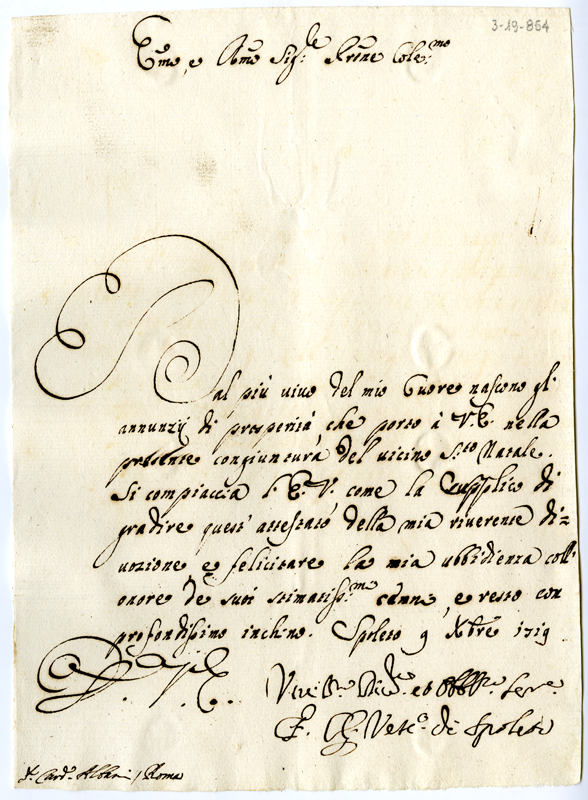 3-19-864
Em̃o, e Rm̃o Sig.re Prõne Col.mo
Dal più vivo del mio Cuore nascono gl'
annunzij di prosperità che porto à V.E. nella
presente congiuntura del vicino S.to Natale.
Si compiaccia l'E.V. come la supplico di
gradire quest' attestato della mia riverente di=
vozione e felicitare la mia ubbidienza coll'
onore de' suoi stimatiss.mi cenni, e resto con
profondissimo inchino. Spoleto 9 Xbre 1719
D. V. E.
Vesc.o di Spoleti
S.r Card. Albani / Roma